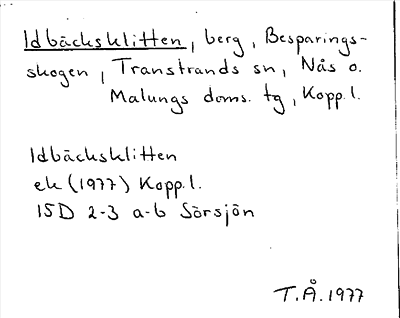 Idbäcksklitten, berg, Besparings-
skogen, Transtrands sn, Nås o.
Malungs doms. tg, Kopp.l.
Idbäcksklitten
ek (1977) Kopp.l.
15D 2-3 a-b Sörsjön
T.Å. 1977